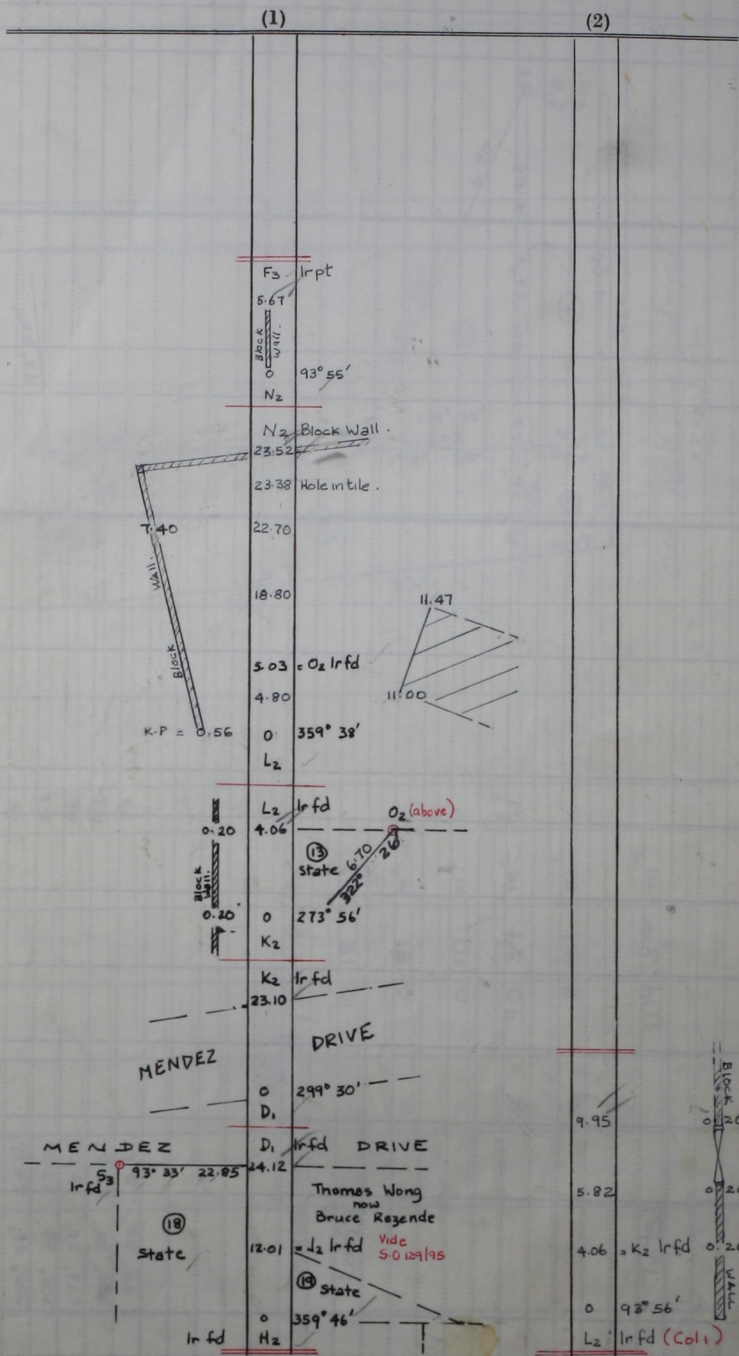 (1)
(2)
F3 Irpt
5.67
Block Wall.
0 93° 55'
N2
N2 Block Wall.
23.52
23.38 Hole in tile.
7.40
22.70
Wall.
18.80
11.47
Block
5.03 = O2 Irfd
4.80
11.00
K.P = 0.56
0 359° 38'
L2
L2 Irfd
O2 (above)
0.20
4.06
13
State
6.70
322° 26'
Block Wall.
0.20
0 273° 56'
K2
K2 Irfd
23.10
MENDEZ DRIVE
0 299° 30'
D1
MENDEZ D1 Irfd DRIVE
S3 93° 33' 22.85
24.12
Irfd
Thomas Wong
now
Bruce Rezende
18
State
12.01 = J2 Irfd
Vide
S.O 129/95
19 State
0 359° 46'
Irfd H2
BLOCK
9.95
0 20
5.82
0 20
4.06 = K2 Irfd
0.20
WALL
0 93° 56'
L2 Irfd (Col 1)